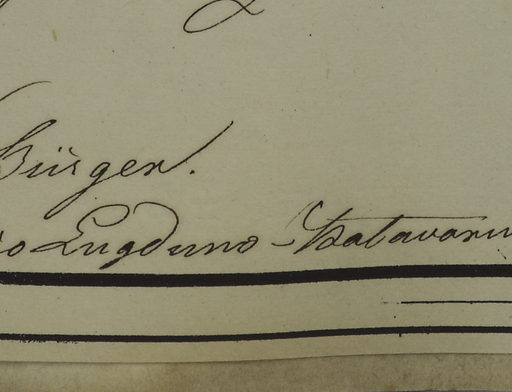 Bürger.
io Lugduno-Batavorum